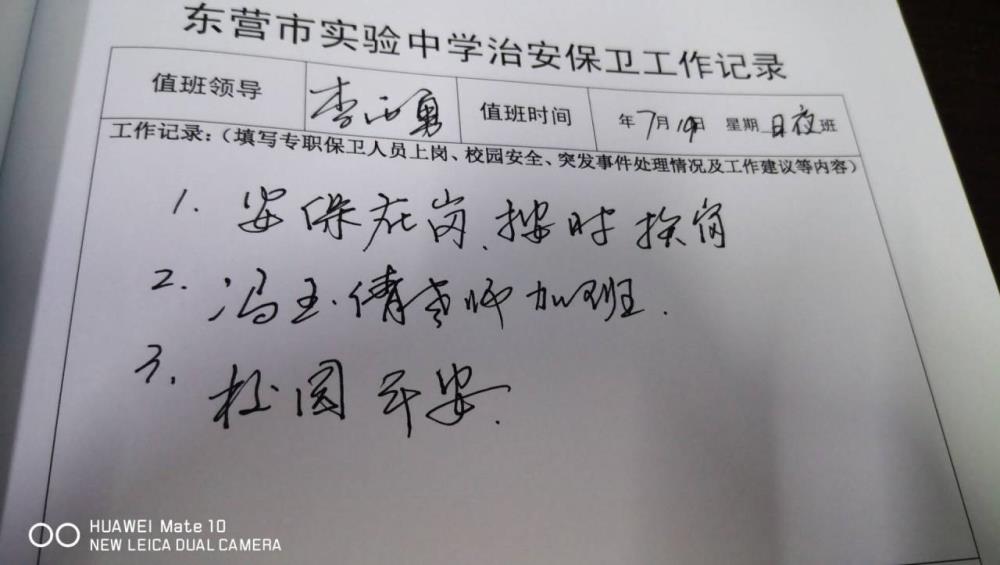 东营市实验中学治安保卫工作记录
值班领导 李西勇 值班时间 年7月19日 星期日夜班
工作记录:(填写专职保卫人员上岗、校园安全、突发事件处理情况及工作建议等内容)
1. 安保在岗、按时换岗
2. 冯玉倩老师加班.
3. 校园平安.
HUAWEI Mate 10
NEW LEICA DUAL CAMERA